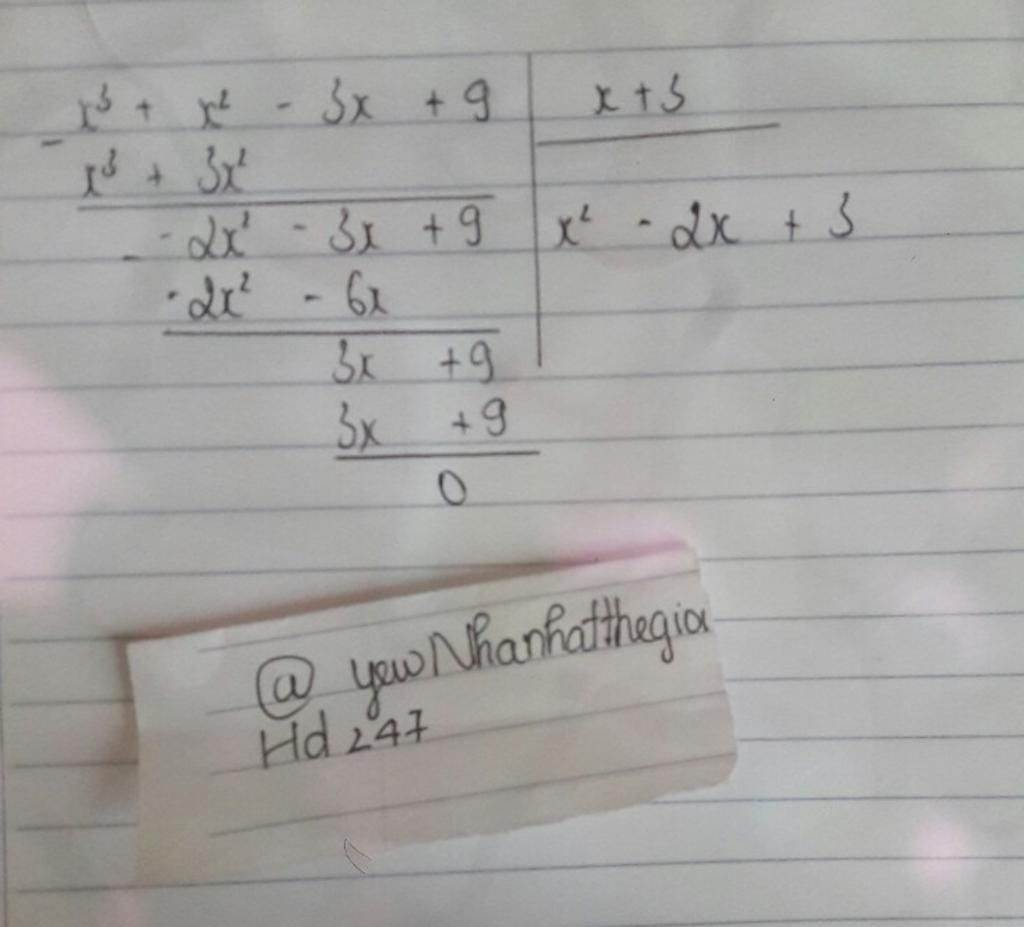 x³ + x² - 3x + 9 x + 3
-
x³ + 3x²
- 2x² - 3x + 9 x² - 2x + 3
-
- 2x² - 6x
3x + 9
3x + 9
0
@ yewNhanhatthegioi
Hd 247